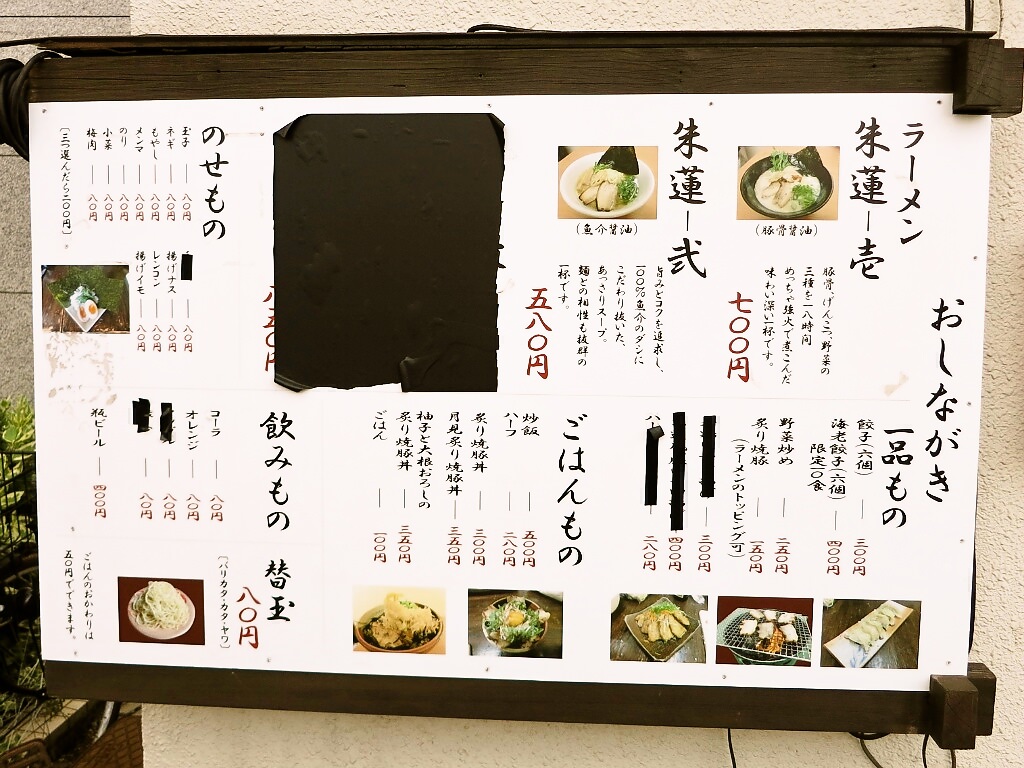 おしながき
ラーメン
朱蓮ー壱
(豚骨醤油)
豚骨、げんこつ、野菜の
三種を一八時間
めっちゃ強火で煮こんだ
味わい深い一杯です。
七〇〇円
朱蓮ー弐
(魚介醤油)
旨みとコクを追求し、
100%魚介のダシに
こだわり抜いた、
あっさりスープ。
麺との相性も抜群の
一杯です。
五八〇円
八五〇円
のせもの
玉子 ― 八〇円
ネギ ― 八〇円
もやし ― 八〇円
メンマ ― 八〇円
のり ― 八〇円
小菜 ― 八〇円
梅肉 ― 八〇円
〔三つ選んだら二〇〇円〕
― 八〇円
揚げナス ― 八〇円
レンコン ― 八〇円
揚げイモ ― 八〇円
一品もの
餃子(六個) ― 三〇〇円
海老餃子(六個) ― 四〇〇円
限定一〇食
野菜炒め ― 二五〇円
炙り焼豚 ― 一五〇円
(ラーメンのトッピング可)
― 三〇〇円
四〇〇円
ハ 二八〇円
ごはんもの
炒飯 ― 五〇〇円
ハーフ ― 二八〇円
炙り焼豚丼 ― 三〇〇円
月見炙り焼豚丼 ― 三五〇円
柚子と大根おろしの
炙り焼豚丼 ― 三五〇円
ごはん ― 一〇〇円
飲みもの
コーラ ― 八〇円
オレンジ ― 八〇円
― 八〇円
― 八〇円
瓶ビール ― 四〇〇円
替玉
八〇円
〔バリカタ・カタ・ヤワ〕
ごはんのおかわりは
五〇円でできます。